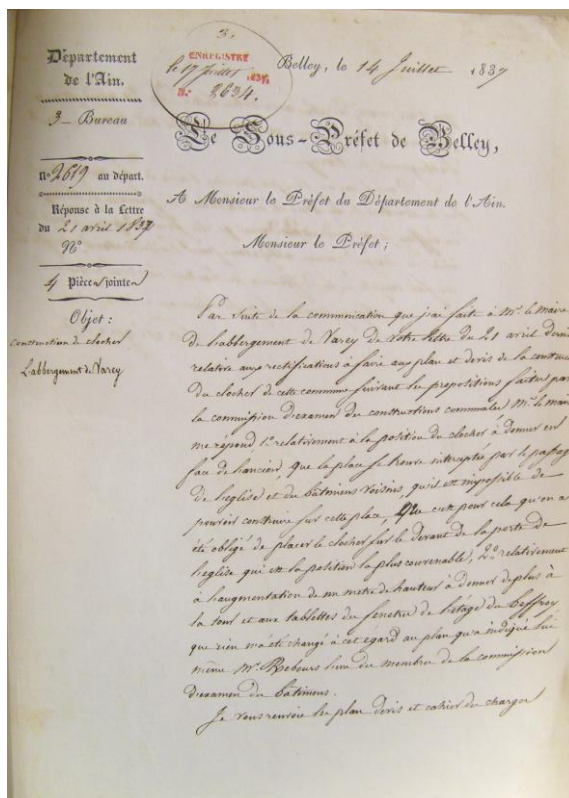 Département
de l'Ain.
3 Bureau
n° 2619 au départ.
Réponse à la Lettre
du 21 avril 1837
N°
4 Pièces jointes
Objet :
Construction de clocher
L'abbergement de Varey
3.
ENREGISTRÉ
le 17 Juillet 1837.
N° 2634.
Belley, le 14 Juillet 1837
Le Sous-Préfet de Belley,
A Monsieur le Préfet du Département de l'Ain.
Monsieur le Préfet ;
Par suite de la communication que j'ai faite à Mr. le maire
de l'abbergement de Varey de votre lettre du 21 avril dernier
relative aux rectifications à faire aux plan et devis de la
du clocher de cette commune suivant les propositions faites par
la commission d'examen des constructions communales Mr. le maire
me répond 1° relativement à la position du clocher à donner en
face de l'ancien, que la place se trouve interceptée par le passage
de l'eglise et des bâtimens voisins, qu'il est impossible de
pouvoir construire sur cette place, que c'est pour cela qu'on a
été obligé de placer le clocher sur le devant de la porte de
l'eglise qui est la position la plus convenable, 2° relativement
à l'augmentation de un metre de hauteur à donner de plus à
la tour et aux tablettes des fenetres de l'étage du Beffroy
que rien n'a été changé à cet egard au plan qu'a indiqué lui
même Mr. Rebours l'un des membres de la commission
d'examen des bâtimens.
Je vous renvoie les plan devis et cahier des charges